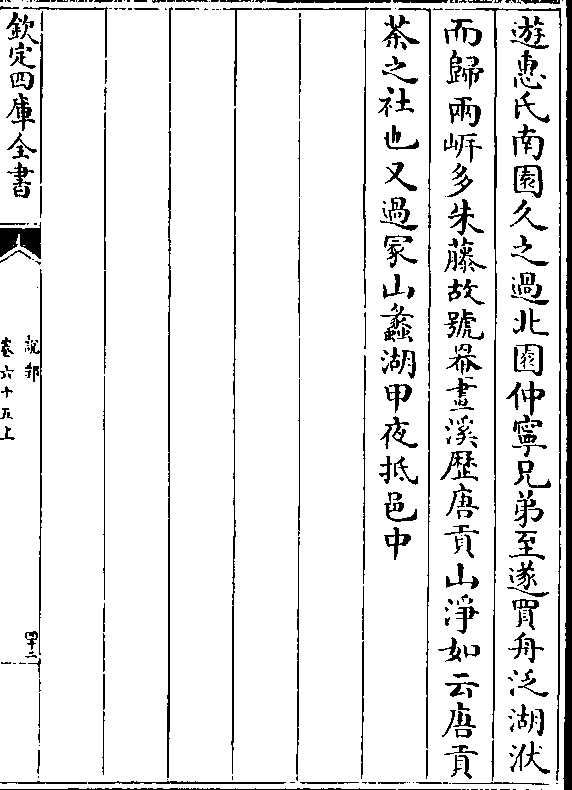 遊惠氏南園久之過北園仲寧兄弟至遂買舟泛湖洑
而歸兩㟁多朱藤故號罨畫溪歷唐貢山淨如云唐貢
茶之社也又過冡山蠡湖甲夜抵邑中
欽定四庫全書
說郛
卷六十五上
四十二